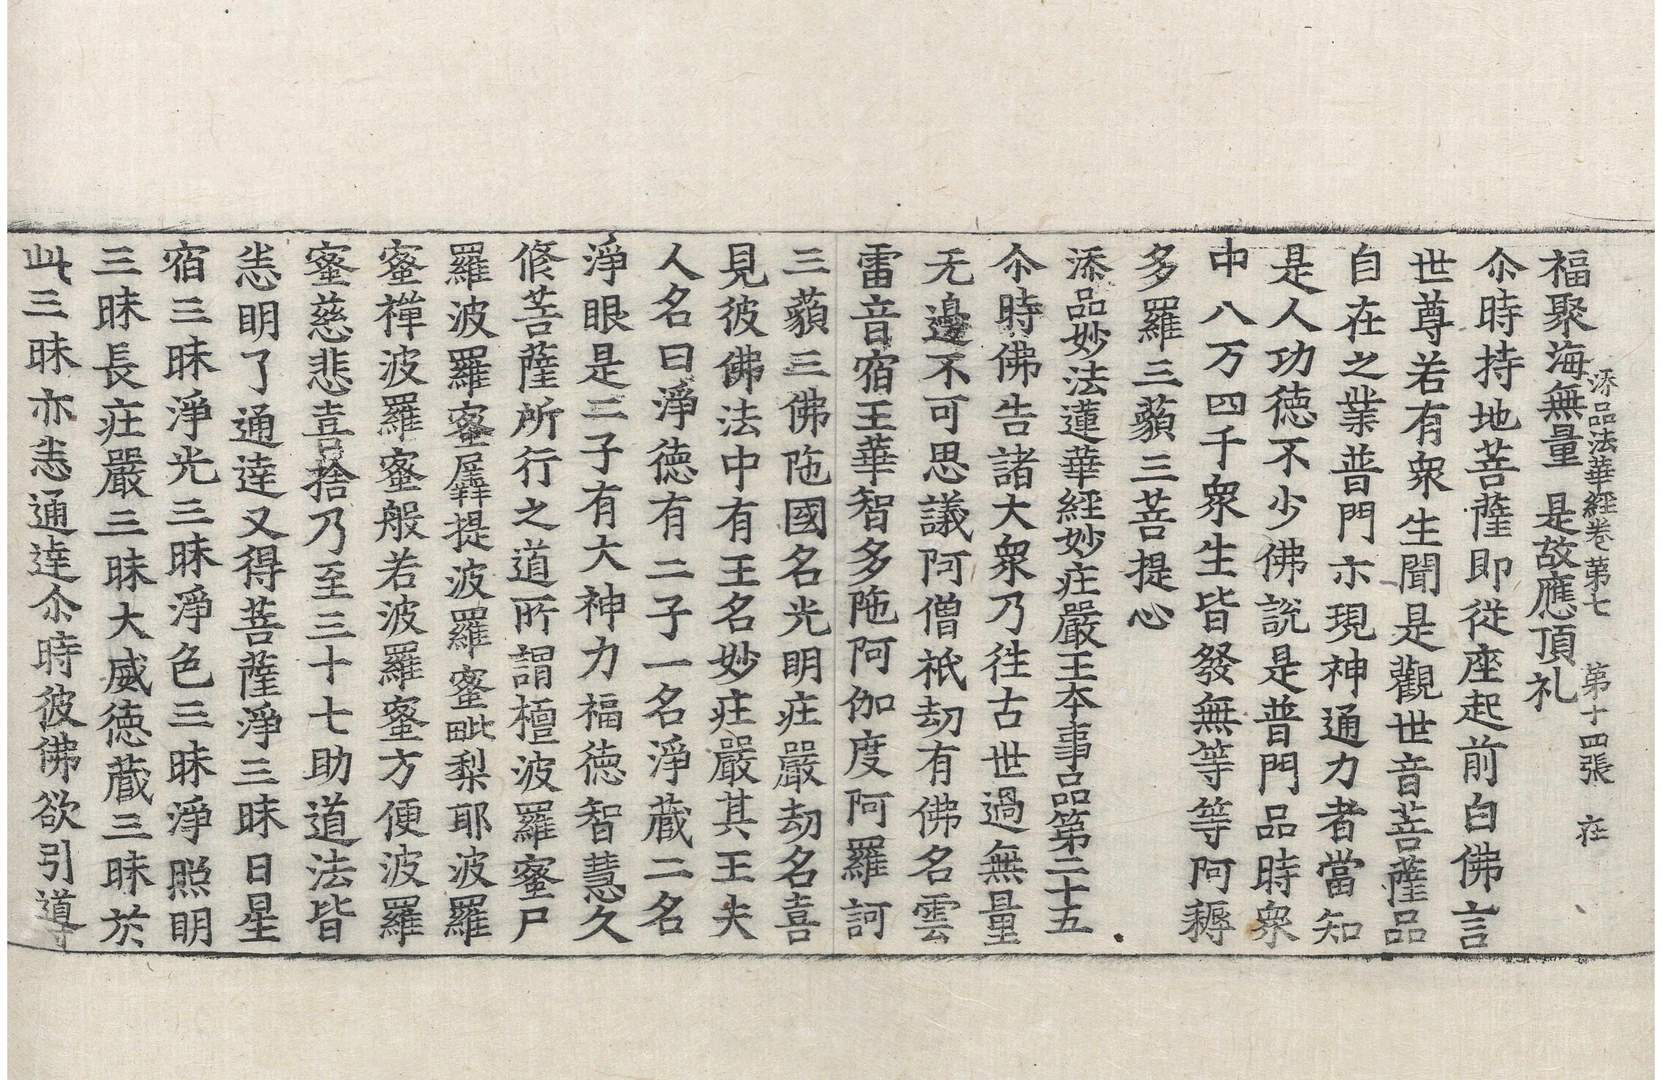 添品法華經卷第七　第十四張　在
福聚海無量　是故應頂礼
尒時持地菩薩即從座起前白佛言
世尊若有衆生聞是觀世音菩薩品
自在之業普門示現神通力者當知
是人功德不少佛說是普門品時衆
中八万四千衆生皆發無等等阿耨
多羅三藐三菩提心
添品妙法蓮華經妙莊嚴王本事品第二十五
尒時佛告諸大衆乃徃古世過無量
无邊不可思議阿僧祇劫有佛名雲
雷音宿王華智多陁阿伽度阿羅訶
三藐三佛陁國名光明莊嚴劫名喜
見彼佛法中有王名妙莊嚴其王夫
人名曰淨德有二子一名淨藏二名
淨眼是二子有大神力福德智慧久
修菩薩所行之道所謂檀波羅蜜尸
羅波羅蜜羼提波羅蜜毗梨耶波羅
蜜禪波羅蜜般若波羅蜜方便波羅
蜜慈悲喜捨乃至三十七助道法皆
悉明了通達又得菩薩淨三昧日星
宿三昧淨光三昧淨色三昧淨照明
三昧長莊嚴三昧大威德藏三昧於
此三昧亦悉通達尒時彼佛欲引導